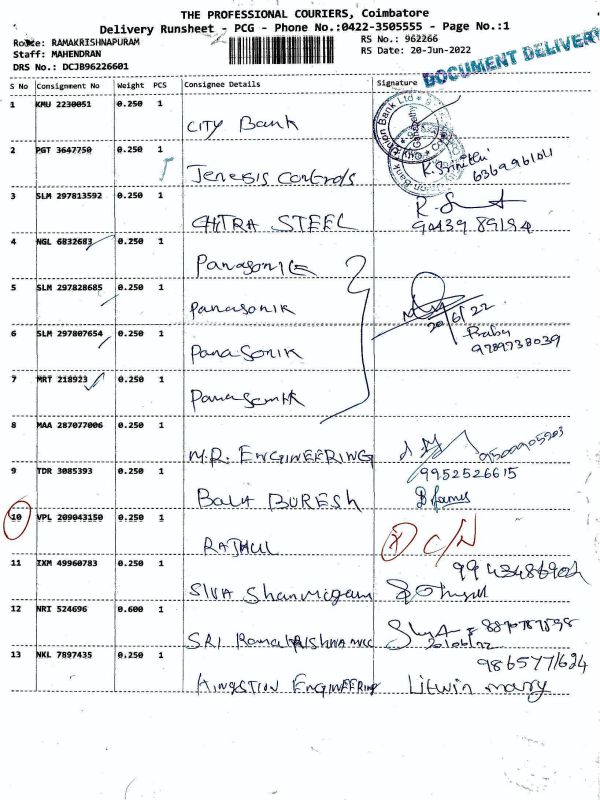 THE PROFESSIONAL COURIERS, Coimbatore
Delivery Runsheet - PCG - Phone No.:0422-3505555 - Page No.:1
Route: RAMAKRISHNAPURAM
RS No.: 962266
Staff: MAHENDRAN
RS Date: 20-Jun-2022
DRS No.: DCJB96226601
DOCUMENT DELIVERY
S No Consignment No Weight PCS Consignee Details Signature
1 KMU 2230051 0.250 1
CITY Bank
2 PGT 3647750 0.250 1
Jenesis controls
6369961011
3 SLM 297813592 0.250 1
CHITRA STEEL
94439 89194
4 NGL 6832683 0.250 1
Panasonic
5 SLM 297828685 0.250 1
Panasonik
20/6/22
6 SLM 297807654 0.250 1
Panasonik
Prabu
9789738039
7 MRT 218923 0.250 1
Panasonik
8 MAA 287077006 0.250 1
M.R. ENGINEERING
9 TDR 3085393 0.250 1
9952526615
Bala BURESH
10 VPL 209043150 0.250 1
RAJHUL
C/N
11 IXM 49960783 0.250 1
SIVA Shanmugam
12 NRI 524696 0.600 1
SRI
20/06/22
13 NKL 7897435 0.250 1
9865771624
ENGINEERING Litwin mary